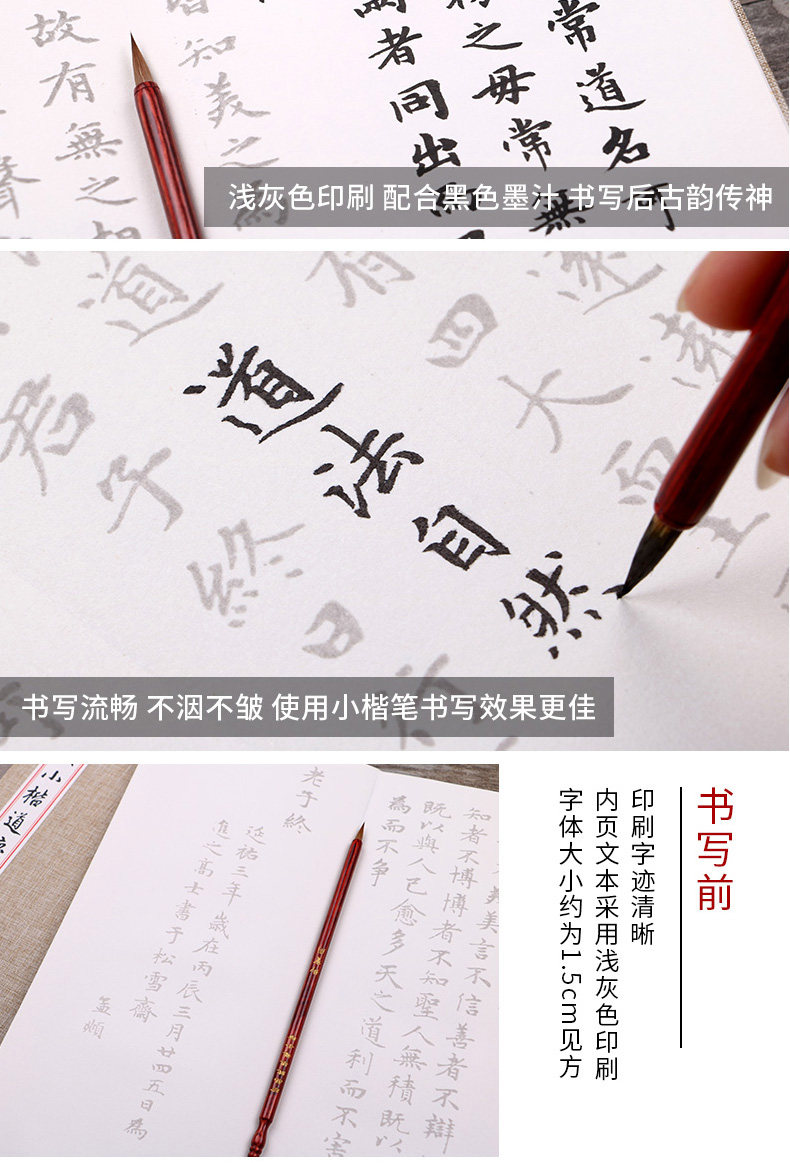 常道名
物之母常無
兩者同出
皆知美之為
故有無之相
聲
浅灰色印刷 配合黑色墨汁 书写后古韵传神
四大
有
道
道法自然
君子終日
书写流畅 不洇不皱 使用小楷笔书写效果更佳
美言不信善者不辯
知者不博博者不知聖人無積既以
既以與人己愈多天之道利而不害
為而不争
老子終
延祐三年歲在丙辰三月廿四五日為
進之高士書于松雪齋
孟頫
小楷道
书写前
印刷字迹清晰
内页文本采用浅灰色印刷
字体大小约为1.5cm见方